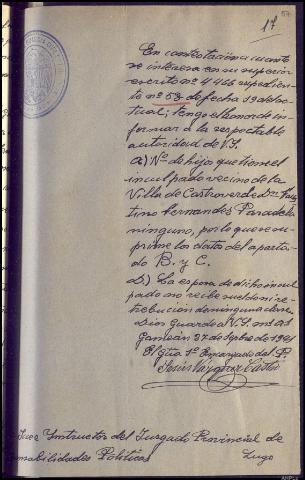 57
17
En contestación cuanto
se interesa en su superior
escrito nº 4446 expedien-
te nº 58 de fecha 19 del ac-
tual; tengo el honor de in-
formar a la respetable
autoridad de V.S.
a) Nº de hijos que tiene el
inculpado vecino de la
Villa de Castroverde Dn. 
tino Fernandez Paradela
ninguno, por lo que se su-
prime los datos del aparta-
do B. y C.
D.) La esposa de dicho incul-
pado no recibe sueldo ni re-
tribución de ninguna clase
Dios Guarde a V.S. ms as
27 de Sepbre de 1941
El Gdia 1º Encargado del P.
Jesús Vázquez Castro
Juez Instructor del Juzgado Provincial de
Responsabilidades Políticas Lugo